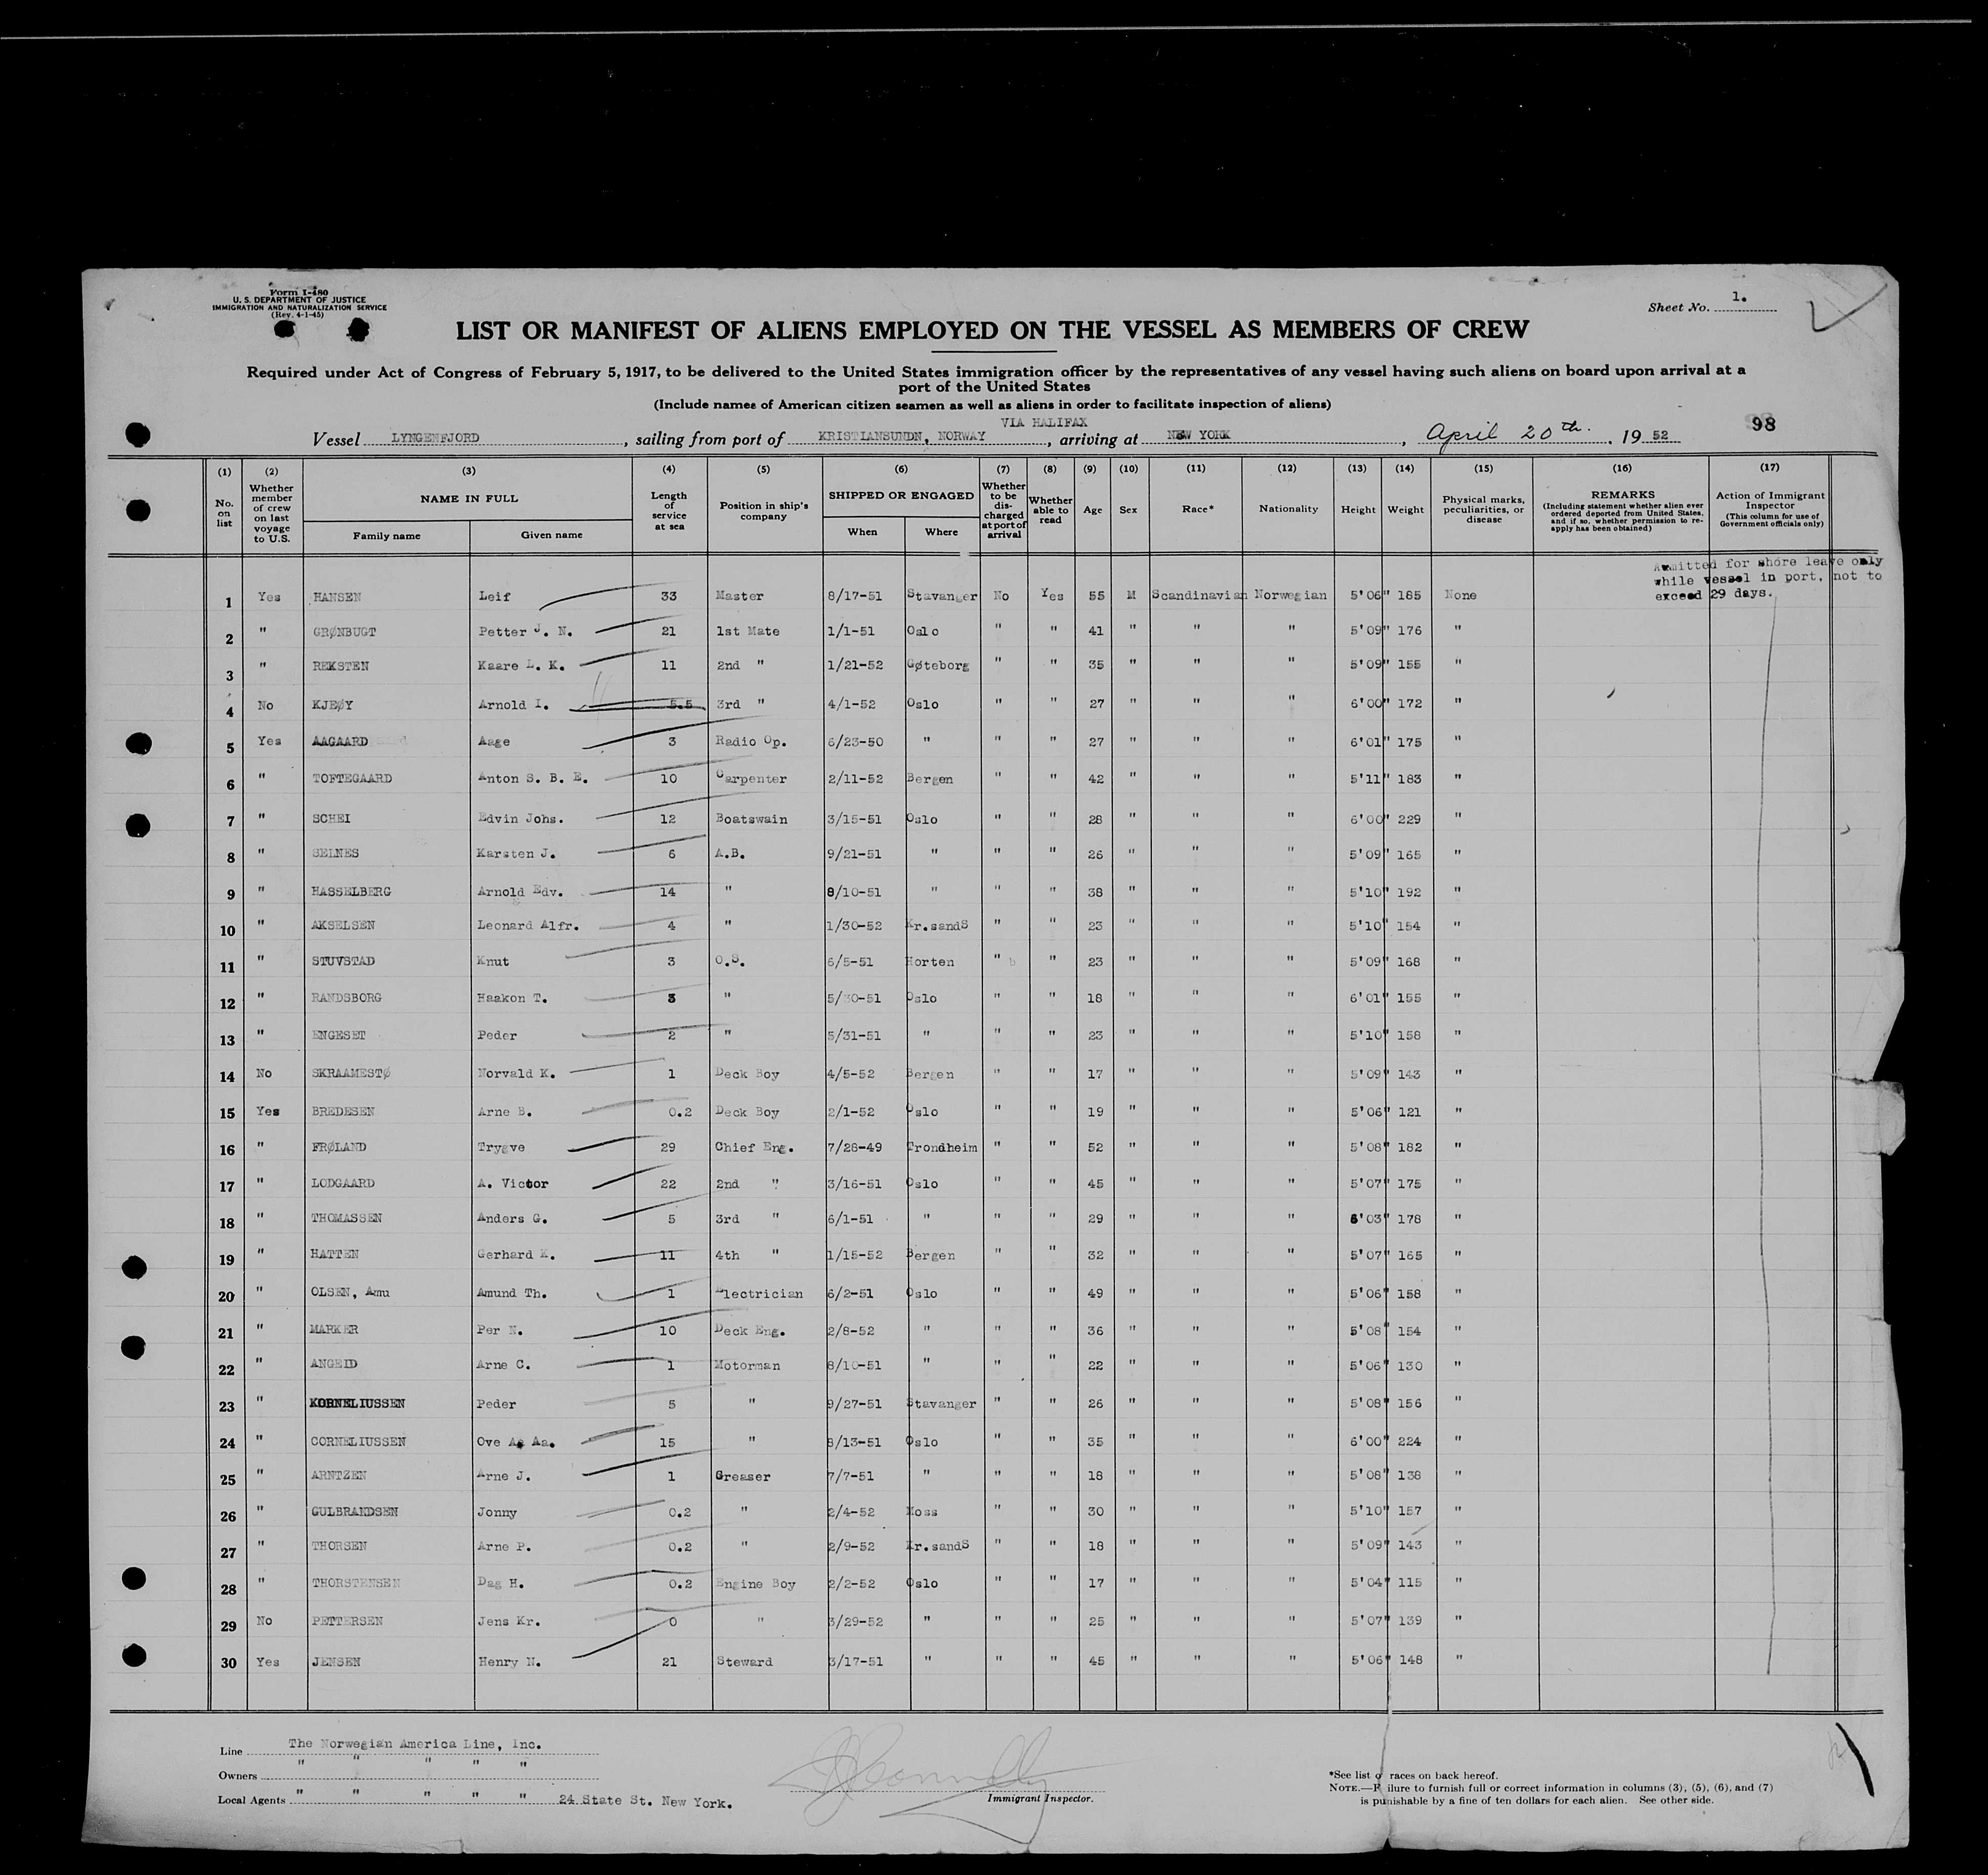 Form I-480
U. S. DEPARTMENT OF JUSTICE
IMMIGRATION AND NATURALIZATION SERVICE
(Rev. 4-1-45)
Sheet No. 1.
LIST OR MANIFEST OF ALIENS EMPLOYED ON THE VESSEL AS MEMBERS OF CREW
Required under Act of Congress of February 5, 1917, to be delivered to the United States immigration officer by the representatives of any vessel having such aliens on board upon arrival at a
port of the United States
(Include names of American citizen seamen as well as aliens in order to facilitate inspection of aliens)
VIA HALIFAX
Vessel LYNGENFJORD, sailing from port of KRISTIANSUNDN, NORWAY, arriving at NEW YORK, April 20th. 19 52 98
(1) No. on list (2) Whether member of crew on last voyage to U.S. (3) NAME IN FULL Family name Given name (4) Length of service at sea (5) Position in ship's company (6) SHIPPED OR ENGAGED When Where (7) Whether to be discharged at port of arrival (8) Whether able to read (9) Age (10) Sex (11) Race* (12) Nationality (13) Height (14) Weight (15) Physical marks, peculiarities, or disease (16) REMARKS (Including statement whether alien ever ordered deported from United States, and if so, whether permission to re-apply has been obtained) (17) Action of Immigrant Inspector (This column for use of Government officials only)
Admitted for shore leave only
while vessel in port, not to
exceed 29 days.
1 Yes HANSEN Leif 33 Master 8/17-51 Stavanger No Yes 55 M Scandinavian Norwegian 5'06" 185 None
2 " GRØNBUGT Petter J. N. 21 1st Mate 1/1-51 Oslo " " 41 " " " 5'09" 176 "
3 " REKSTEN Kaare L. K. 11 2nd " 1/21-52 Gøteborg " " 35 " " " 5'09" 155 "
4 No KJEØY Arnold I. 5.5 3rd " 4/1-52 Oslo " " 27 " " " 6'00" 172 "
5 Yes AAGAARD Aage 3 Radio Op. 6/23-50 " " " 27 " " " 6'01" 175 "
6 " TOFTEGAARD Anton S. B. E. 10 Carpenter 2/11-52 Bergen " " 42 " " " 5'11" 183 "
7 " SCHEI Edvin Johs. 12 Boatswain 3/15-51 Oslo " " 28 " " " 6'00" 229 "
8 " SELNES Karsten J. 6 A.B. 9/21-51 " " " 26 " " " 5'09" 165 "
9 " HASSELBERG Arnold Edv. 14 " 8/10-51 " " " 38 " " " 5'10" 192 "
10 " AKSELSEN Leonard Alfr. 4 " 1/30-52 Kr.sandS " " 23 " " " 5'10" 154 "
11 " STUVSTAD Knut 3 O.S. 6/5-51 Horten " " 23 " " " 5'09" 168 "
12 " RANDSBORG Haakon T. 3 " 5/30-51 Oslo " " 18 " " " 6'01" 155 "
13 " ENGESET Peder 2 " 5/31-51 " " " 23 " " " 5'10" 158 "
14 No SKRAAMESTØ Norvald K. 1 Deck Boy 4/5-52 Bergen " " 17 " " " 5'09" 143 "
15 Yes BREDESEN Arne B. 0.2 Deck Boy 2/1-52 Oslo " " 19 " " " 5'06" 121 "
16 " FRØLAND Trygve 29 Chief Eng. 7/28-49 Trondheim " " 52 " " " 5'08" 182 "
17 " LODGAARD A. Victor 22 2nd " 3/16-51 Oslo " " 45 " " " 5'07" 175 "
18 " THOMASSEN Anders G. 5 3rd " 6/1-51 " " " 29 " " " 6'03" 178 "
19 " HATTEN Gerhard K. 11 4th " 1/15-52 Bergen " " 32 " " " 5'07" 165 "
20 " OLSEN, Amu Amund Th. 1 Electrician 6/2-51 Oslo " " 49 " " " 5'06" 158 "
21 " MARKER Per N. 10 Deck Eng. 2/8-52 " " " 36 " " " 5'08" 154 "
22 " ANGEID Arne C. 1 Motorman 8/10-51 " " " 22 " " " 5'06" 130 "
23 " KORNELIUSSEN Peder 5 " 9/27-51 Stavanger " " 26 " " " 5'08" 156 "
24 " CORNELIUSSEN Ove A. Aa. 15 " 8/13-51 Oslo " " 35 " " " 6'00" 224 "
25 " ARNTZEN Arne J. 1 Greaser 7/7-51 " " " 18 " " " 5'08" 138 "
26 " GULBRANDSEN Jonny 0.2 " 2/4-52 Moss " " 30 " " " 5'10" 157 "
27 " THORSEN Arne P. 0.2 " 2/9-52 Kr.sandS " " 18 " " " 5'09" 143 "
28 " THORSTENSEN Dag H. 0.2 Engine Boy 2/2-52 Oslo " " 17 " " " 5'04" 115 "
29 No PETTERSEN Jens Kr. 0 " 3/29-52 " " " 25 " " " 5'07" 139 "
30 Yes JENSEN Henry N. 21 Steward 3/17-51 " " " 45 " " " 5'06" 148 "
Line The Norwegian America Line, Inc.
Owners " " " " "
Local Agents " " " " " 24 State St. New York.
Immigrant Inspector.
*See list of races on back hereof.
NOTE.—Failure to furnish full or correct information in columns (3), (5), (6), and (7)
is punishable by a fine of ten dollars for each alien. See other side.